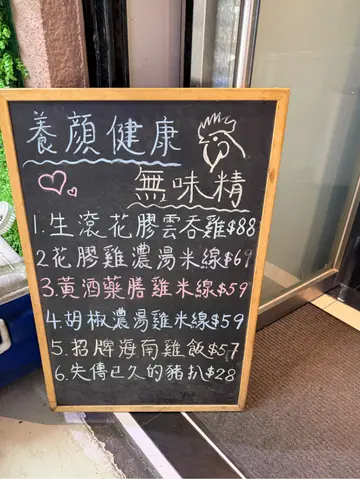 養顏健康
無味精
1.生滾花膠雲吞雞$88
2花膠雞濃湯米線$69
3.黃酒藥膳雞米線$59
4.胡椒濃湯雞米線$59
5.招牌海南雞飯$57
6.失傳已久的豬扒$28